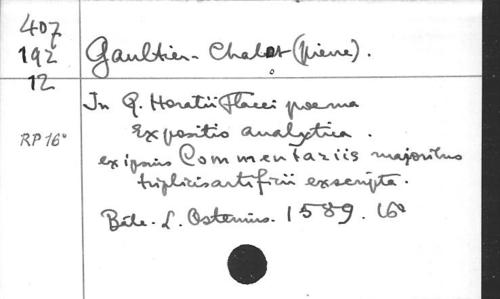 407
192
12
Gaultier-Chabot (pierre).
In Q. Horatii Flacci poema
Expositio analytica.
RP 16°
ex ipsius Commentariis majoribus
triplicis artificii exscripta.
Bâle. L. Ostenius. 1589. 16°